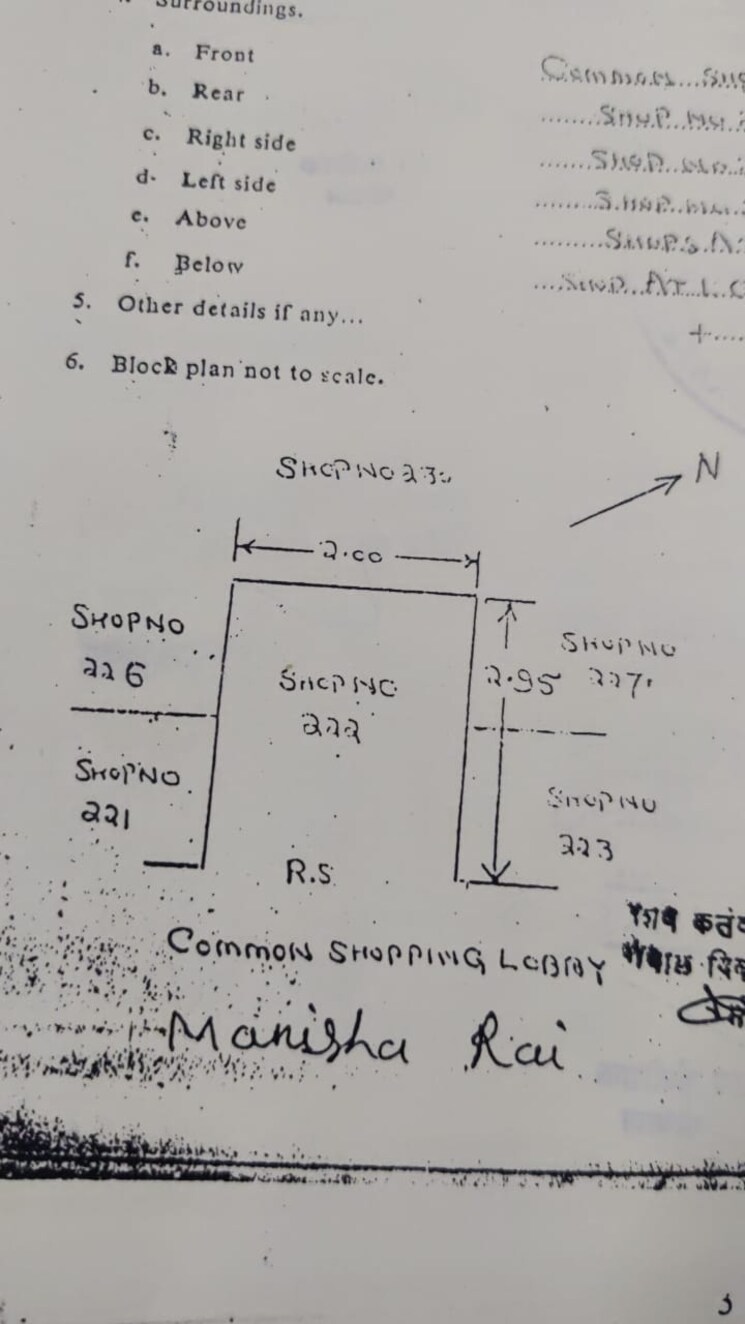 Surroundings.
a. Front
b. Rear
c. Right side
d. Left side
e. Above
f. Below
Common
SHOP NO.
SHOP NO.
SHOP NO.
SHOPS
SHOP AT
5. Other details if any...
6. Block plan not to scale.
SHOP NO 230
N
2.00
SHOP NO
226
SHOP NO
222
2.95
SHOP NO
227
SHOP NO
221
SHOP NO
223
R.S
COMMON SHOPPING LOBBY
Manisha Rai